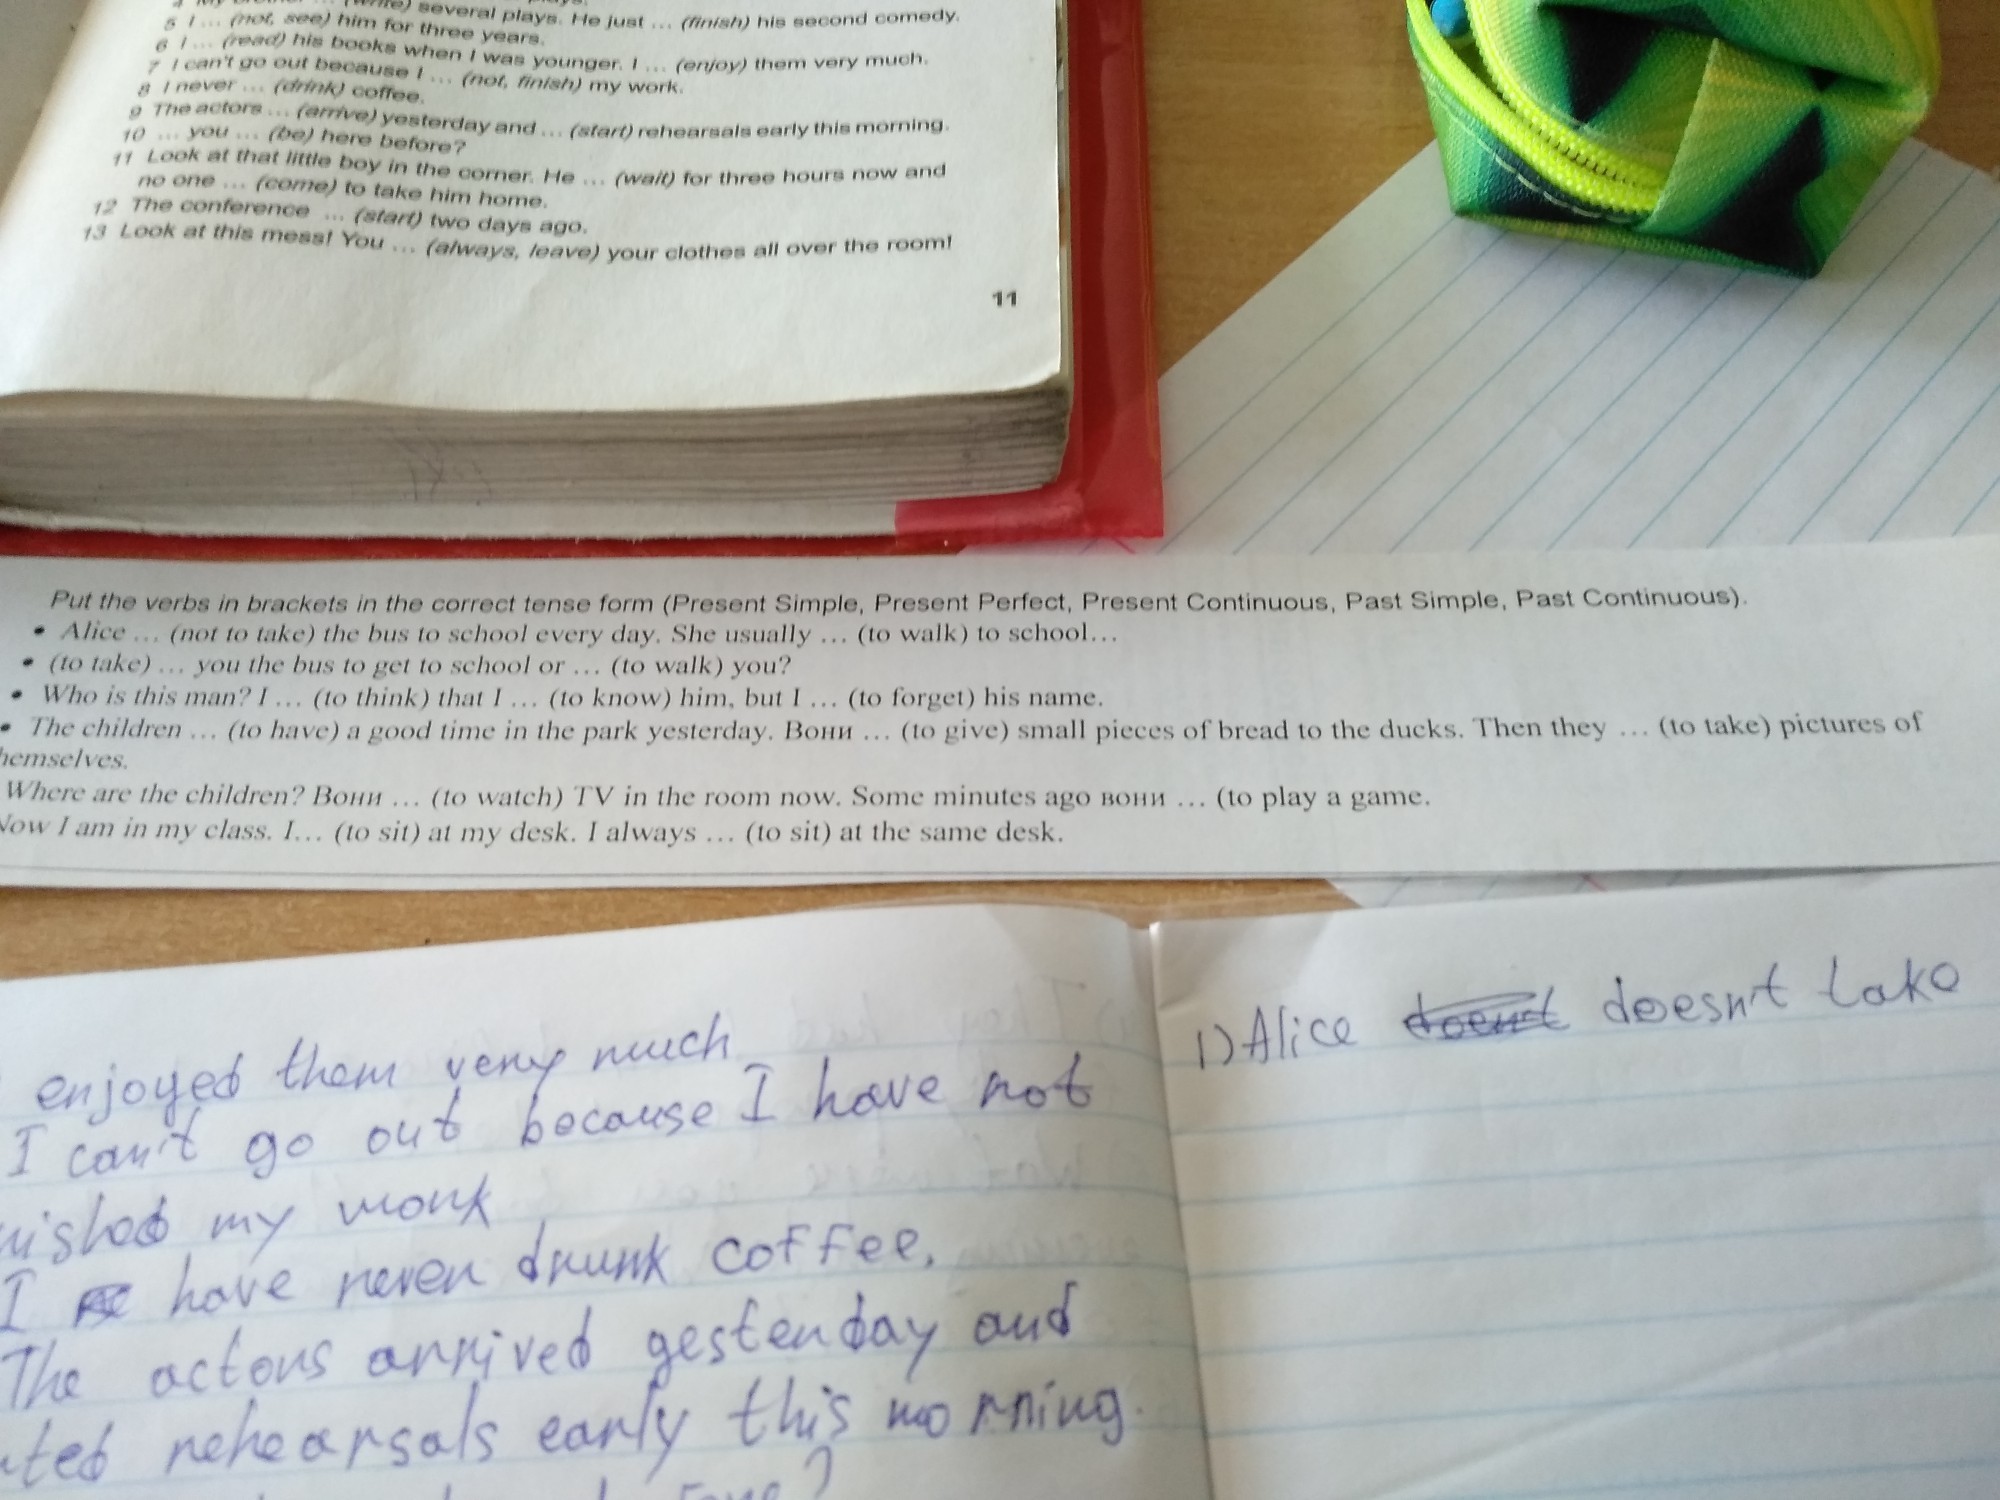 (write) several plays. He just ... (finish) his second comedy.
5 I ... (not, see) him for three years.
6 I ... (read) his books when I was younger. I ... (enjoy) them very much.
7 I can't go out because I ... (not, finish) my work.
8 I never ... (drink) coffee.
9 The actors ... (arrive) yesterday and ... (start) rehearsals early this morning.
10 ... you ... (be) here before?
11 Look at that little boy in the corner. He ... (wait) for three hours now and
no one ... (come) to take him home.
12 The conference ... (start) two days ago.
13 Look at this mess! You ... (always, leave) your clothes all over the room!
11
Put the verbs in brackets in the correct tense form (Present Simple, Present Perfect, Present Continuous, Past Simple, Past Continuous).
• Alice ... (not to take) the bus to school every day. She usually ... (to walk) to school...
• (to take) ... you the bus to get to school or ... (to walk) you?
• Who is this man? I ... (to think) that I ... (to know) him, but I ... (to forget) his name.
• The children ... (to have) a good time in the park yesterday. Вони ... (to give) small pieces of bread to the ducks. Then they ... (to take) pictures of
hemselves.
Where are the children? Вони ... (to watch) TV in the room now. Some minutes ago вони ... (to play a game.
Now I am in my class. I... (to sit) at my desk. I always ... (to sit) at the same desk.
enjoyed them very much
I can't go out because I have not
nished my work
I have never drunk coffee.
The actors arrived yesterday and
ted rehearsals early this morning.
1) Alice doesn't take